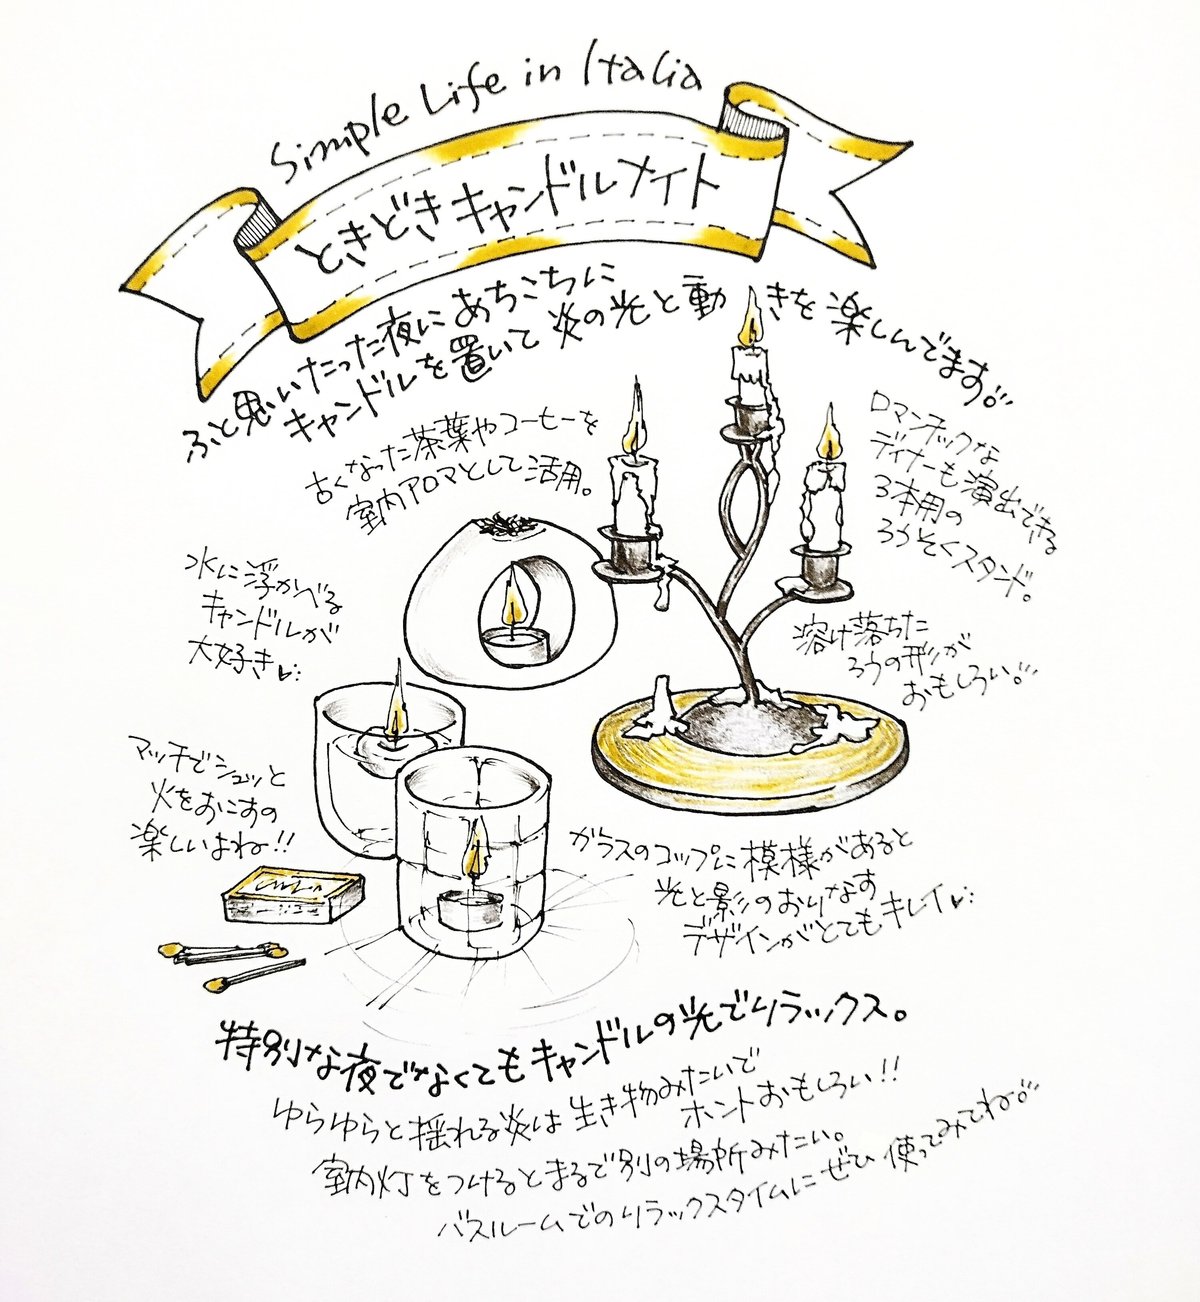 Simple Life in Italia
ときどきキャンドルナイト
ふと思いたった夜にあちこちに
キャンドルを置いて炎の光と動きを楽しんでます。
古くなった茶葉やコーヒーを
室内アロマとして活用。
ロマンチックな
ディナーも演出できる
3本用の
ろうそくスタンド。
水に浮かべる
キャンドルが
大好き♡
溶け落ちた
ろうの形が
おもしろい。
マッチでシュッと
火をおこすの
楽しいよね!!
ガラスのコップに模様があると
光と影のおりなす
デザインがとてもキレイ♡
特別な夜でなくてもキャンドルの光でリラックス。
ゆらゆらと揺れる炎は生き物みたいで
ホントおもしろい!!
室内灯をつけるとまるで別の場所みたい。
バスルームでのリラックスタイムにぜひ使ってみてね。